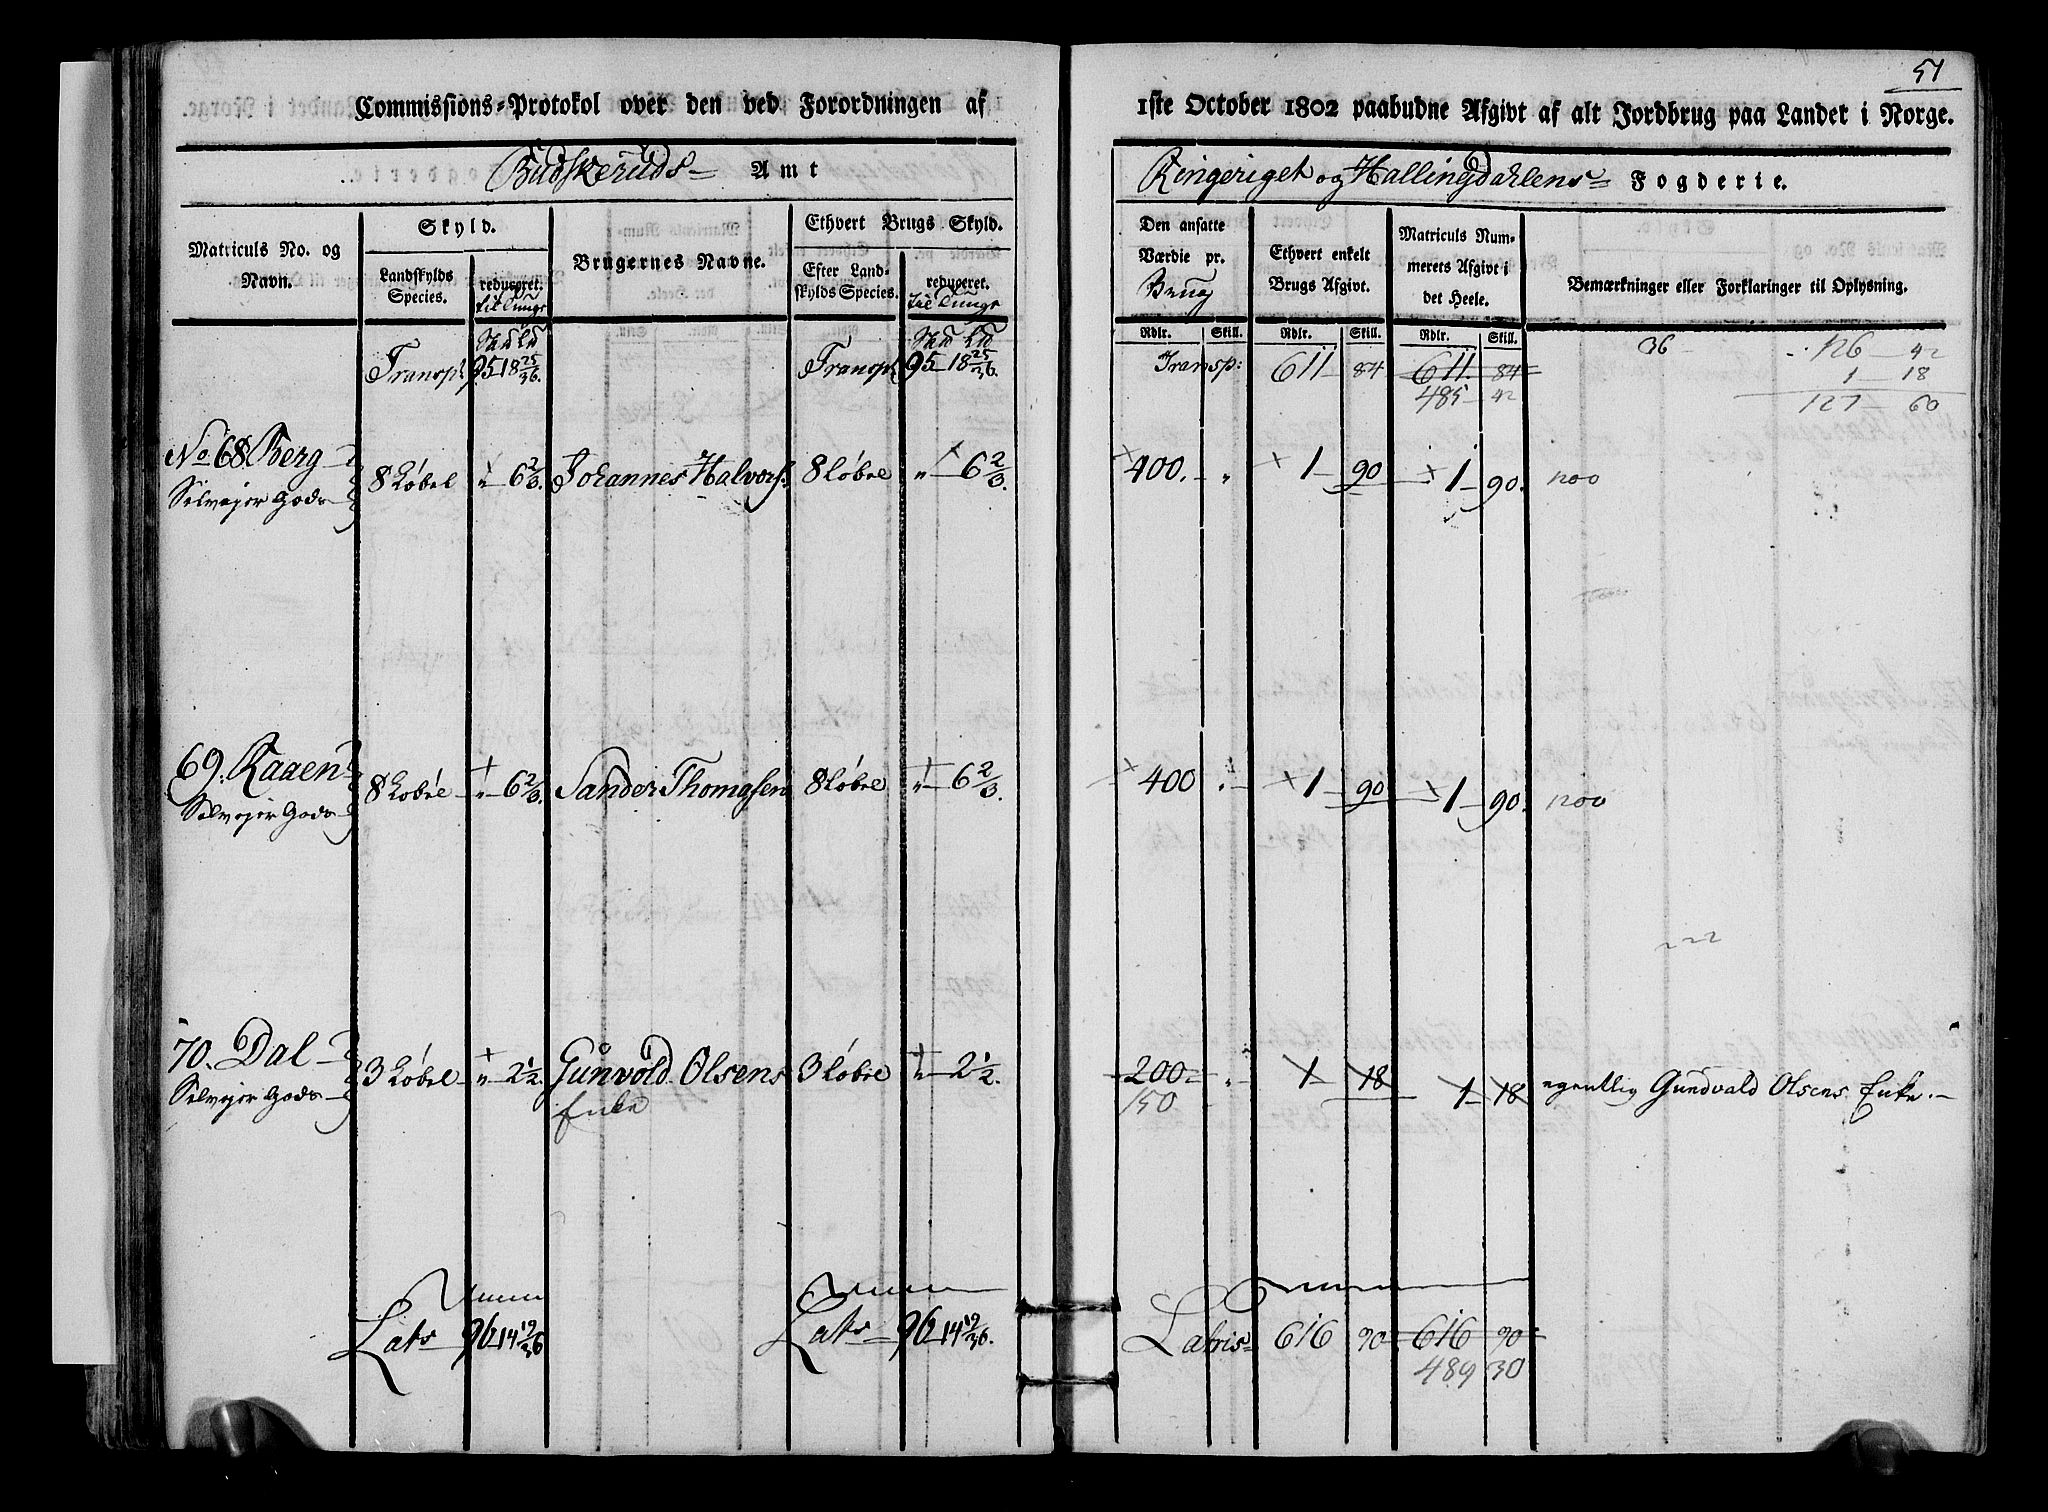 51
Commissions-Protokol over den ved Forordningen af 1ste October 1802 paabudne Afgivt af alt Jordbrug paa Landet i Norge.
Budskeruds Amt
Ringeriget og Hallingdahlens Fogderie.
Matriculs No. og Navn.
Skyld.
Landskylds Species.
reduceret. til Tunge
Brugernes Navne.
Ethvert Brugs Skyld.
Efter Landskylds Species.
reduceret. til Tunge
Den ansatte Værdie pr. Brug
Ethvert enkelt Brugs Afgivt.
Matriculs Nummerets Afgivt i det Heele.
Bemærkninger eller Forklaringer til Oplysning.
Rdlr. Skill. Rdlr. Skill. Rdlr. Skill.
Skd Ld Skd Ld
Transp: 95 18 25/36. Transp: 95 18 25/36. Transp: 611 84 611 84
36 126 42
1 18
485 42 127 60
No 68 Berg 8 Løbel " 6 2/3. Johannes Halvors: 8 Løbel " 6 2/3. 400. " 1 90 1 90.
Selvejer Gods
69. Raaen 8 Løbel " 6 2/3. Sander Thomasen 8 Løbel " 6 2/3. 400 " 1 90 1 90.
Selvejer Gods
70. Dal 3 Løbel " 2 1/2. Gunvold Olsens 3 Løbel " 2 1/2. 200 " 1 18 1 18 egentlig Gundvald Olsens Enke.
Selvejer Gods Enke 150
Lats 96 14 19/36 Lats 96 14 19/36. Lateris 616 90 616 90
489 30